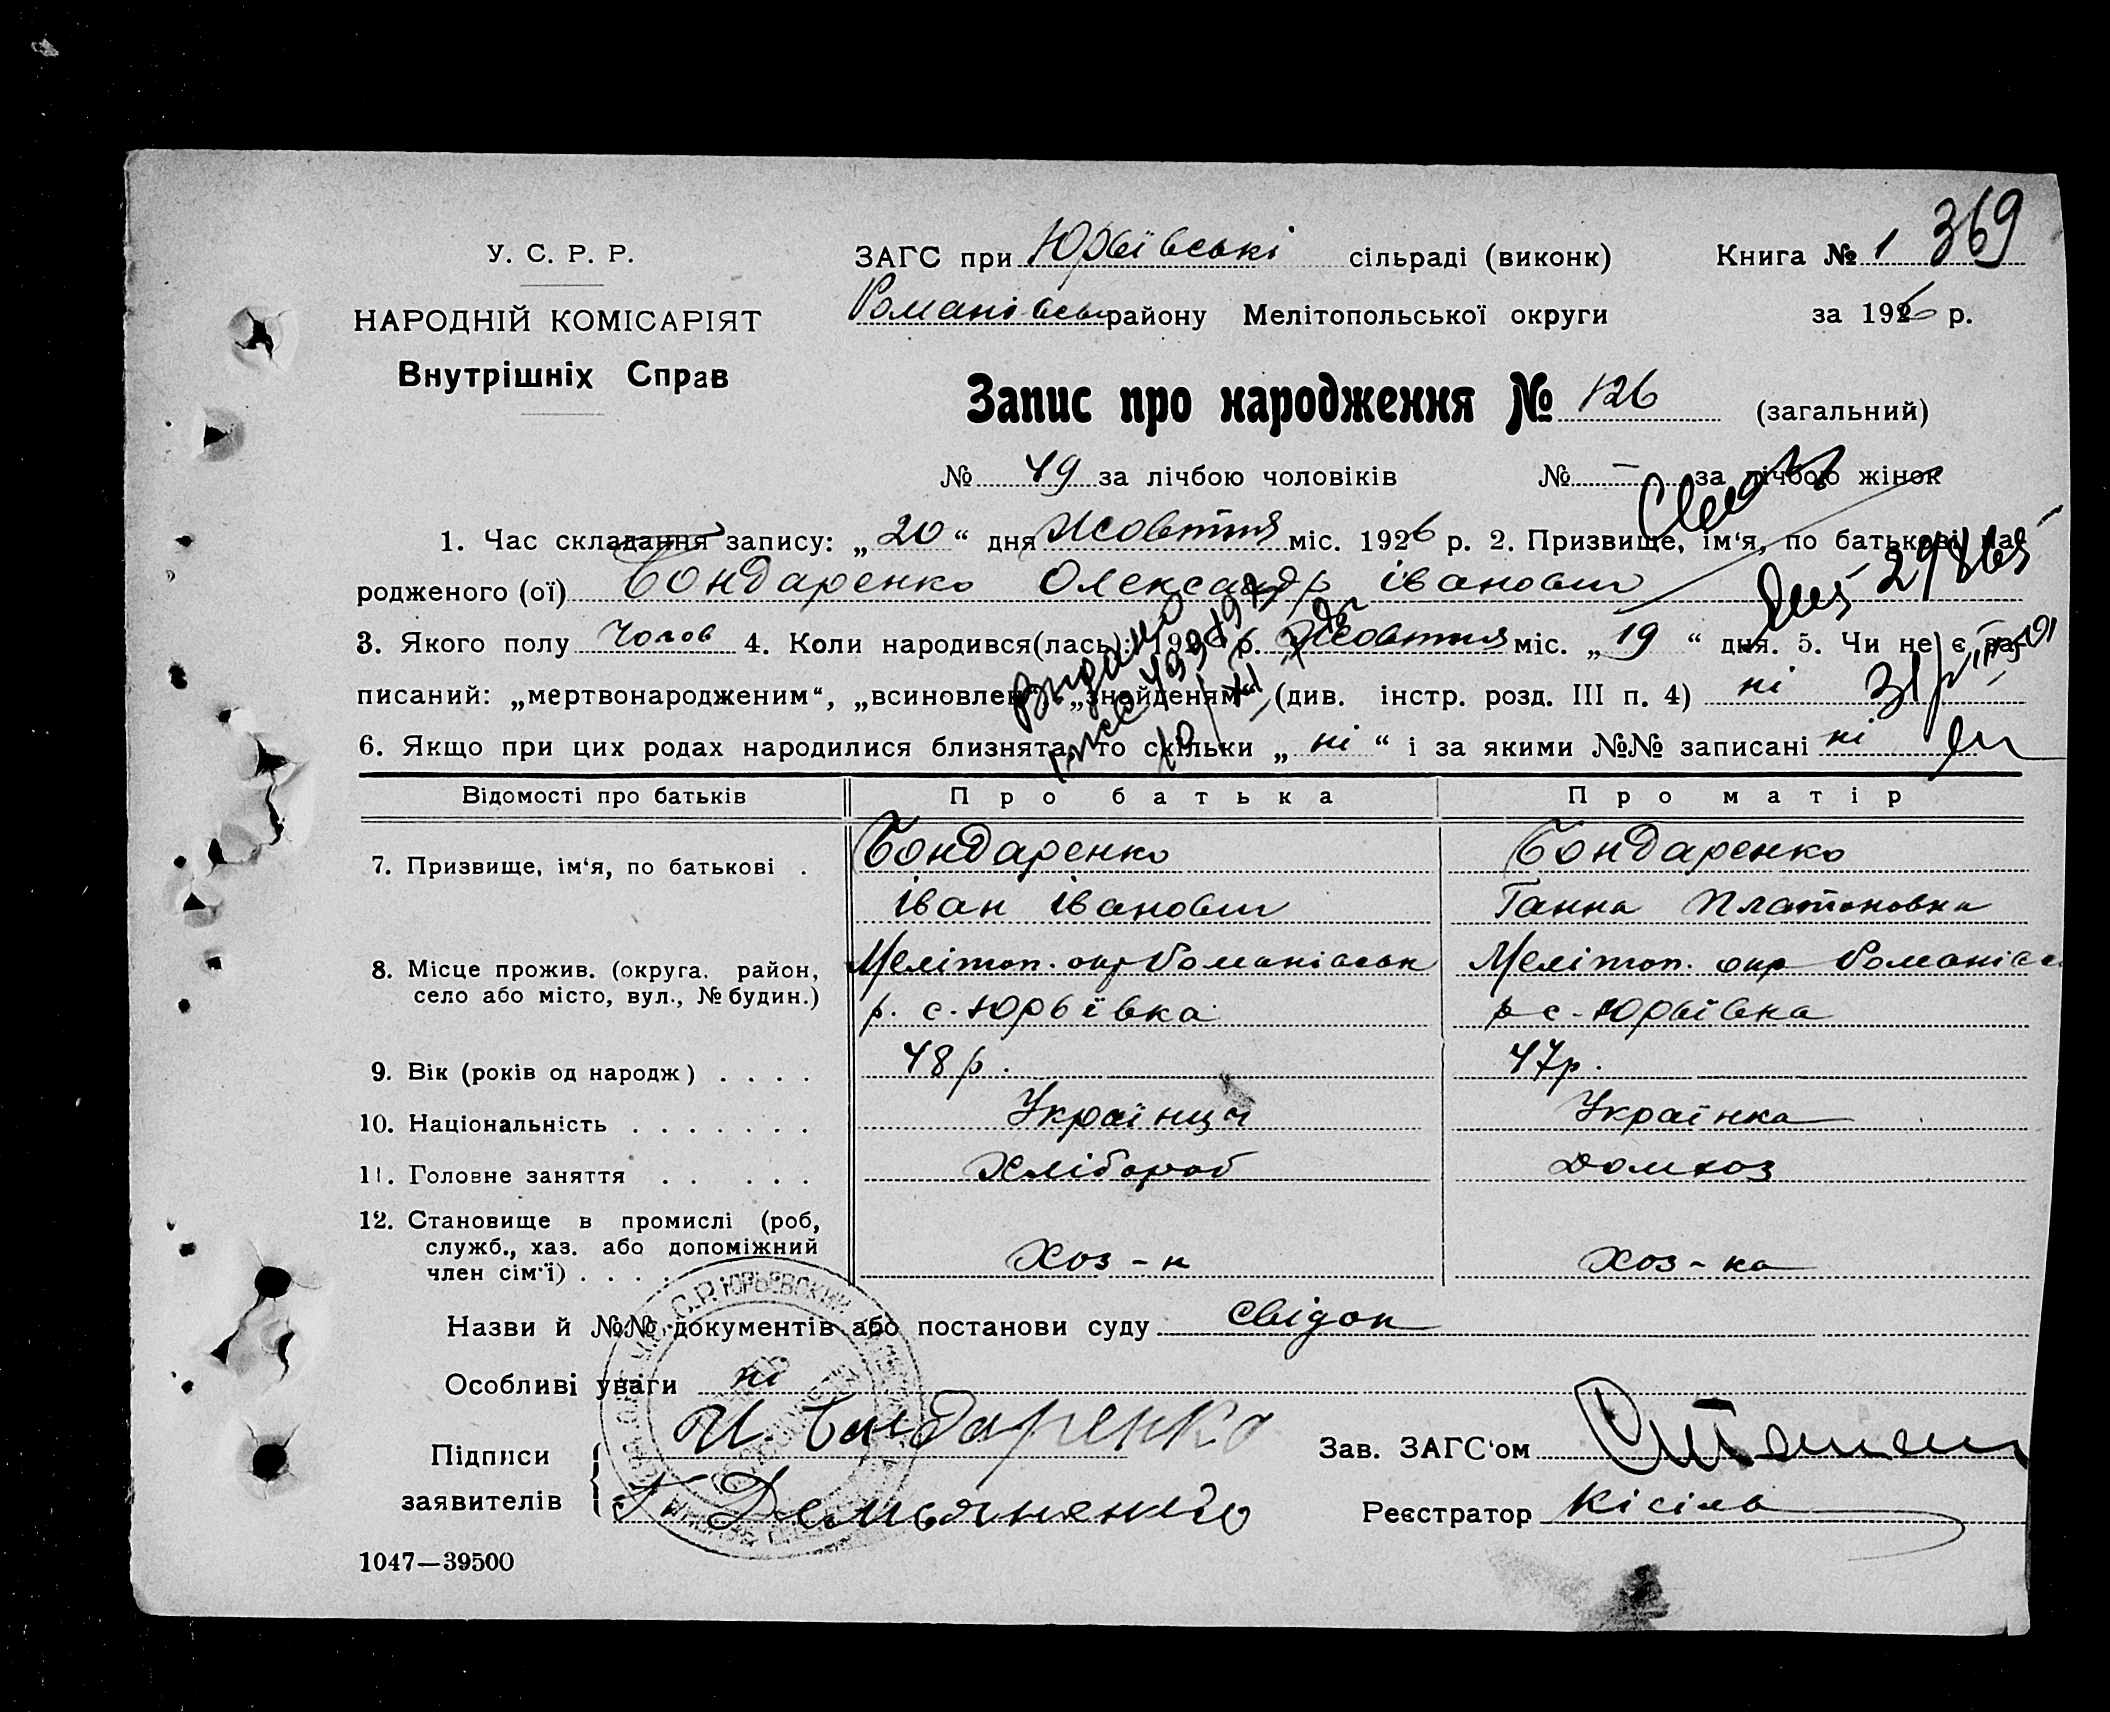 369
У. С. Р. Р.
НАРОДНІЙ КОМІСАРІЯТ
Внутрішніх Справ
ЗАГС при Юрьївські сільраді (виконк) Книга № 1
Романівськ району Мелітопольської округи за 1926 р.
Запис про народження № 126 (загальний)
№ 49 за лічбою чоловіків № — за лічбою жінок
1. Час складання запису: „ 20 “ дня Жовтня міс. 1926 р. 2. Призвище, ім'я, по батькові на-
родженого (ої) Бондаренко Олександр Іванович
3. Якого полу Чолов 4. Коли народився(лась): 1926 р. Жовтня міс. „ 19 “ дня. 5. Чи не є за-
писаний: „мертвонародженим“, „всиновлен“, „знайденям“ (див. інстр. розд. III п. 4) ні
6. Якщо при цих родах народилися близнята, то скільки „ ні “ і за якими №№ записані ні
Видано
Відомості про батьків Про батька Про матір
7. Призвище, ім'я, по батькові . Бондаренко Бондаренко
Іван Іванович Ганна Платоновна
8. Місце прожив. (округа, район, Меліт​оп. окр Романівськ Мелітоп. окр Романівс
село або місто, вул., № будин.) р. с. Юрьївка р с. Юрьївка
9. Вік (років од народж) . . . . 48 р. 47 р.
10. Національність . . . . . . . Українци Українка
11. Головне заняття . . . . . Хлібороб Домхоз
12. Становище в промислі (роб,
служб., хаз. або допоміжний Хоз-н Хоз-ка
член сім'ї) . . . .
Назви й №№ документів або постанови суду свідок
Особливі уваги ні
Підписи И. Бондаренко Зав. ЗАГС'ом
заявителів Г. Демьяненко Реєстратор Кісіль
1047—39500